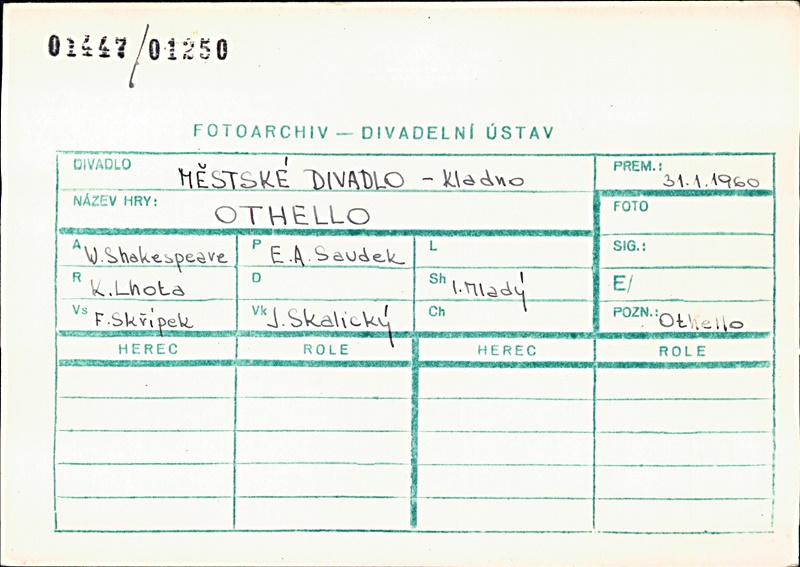 01447/01250
FOTOARCHIV — DIVADELNÍ ÚSTAV
DIVADLO MĚSTSKÉ DIVADLO - Kladno PREM.: 31.1.1960
NÁZEV HRY: OTHELLO FOTO
A W.Shakespeare P E.A.Saudek L SIG.:
R K.Lhota D Sh I.Mladý E/
Vs F.Skřípek Vk J.Skalický Ch POZN.: Othello
HEREC ROLE HEREC ROLE